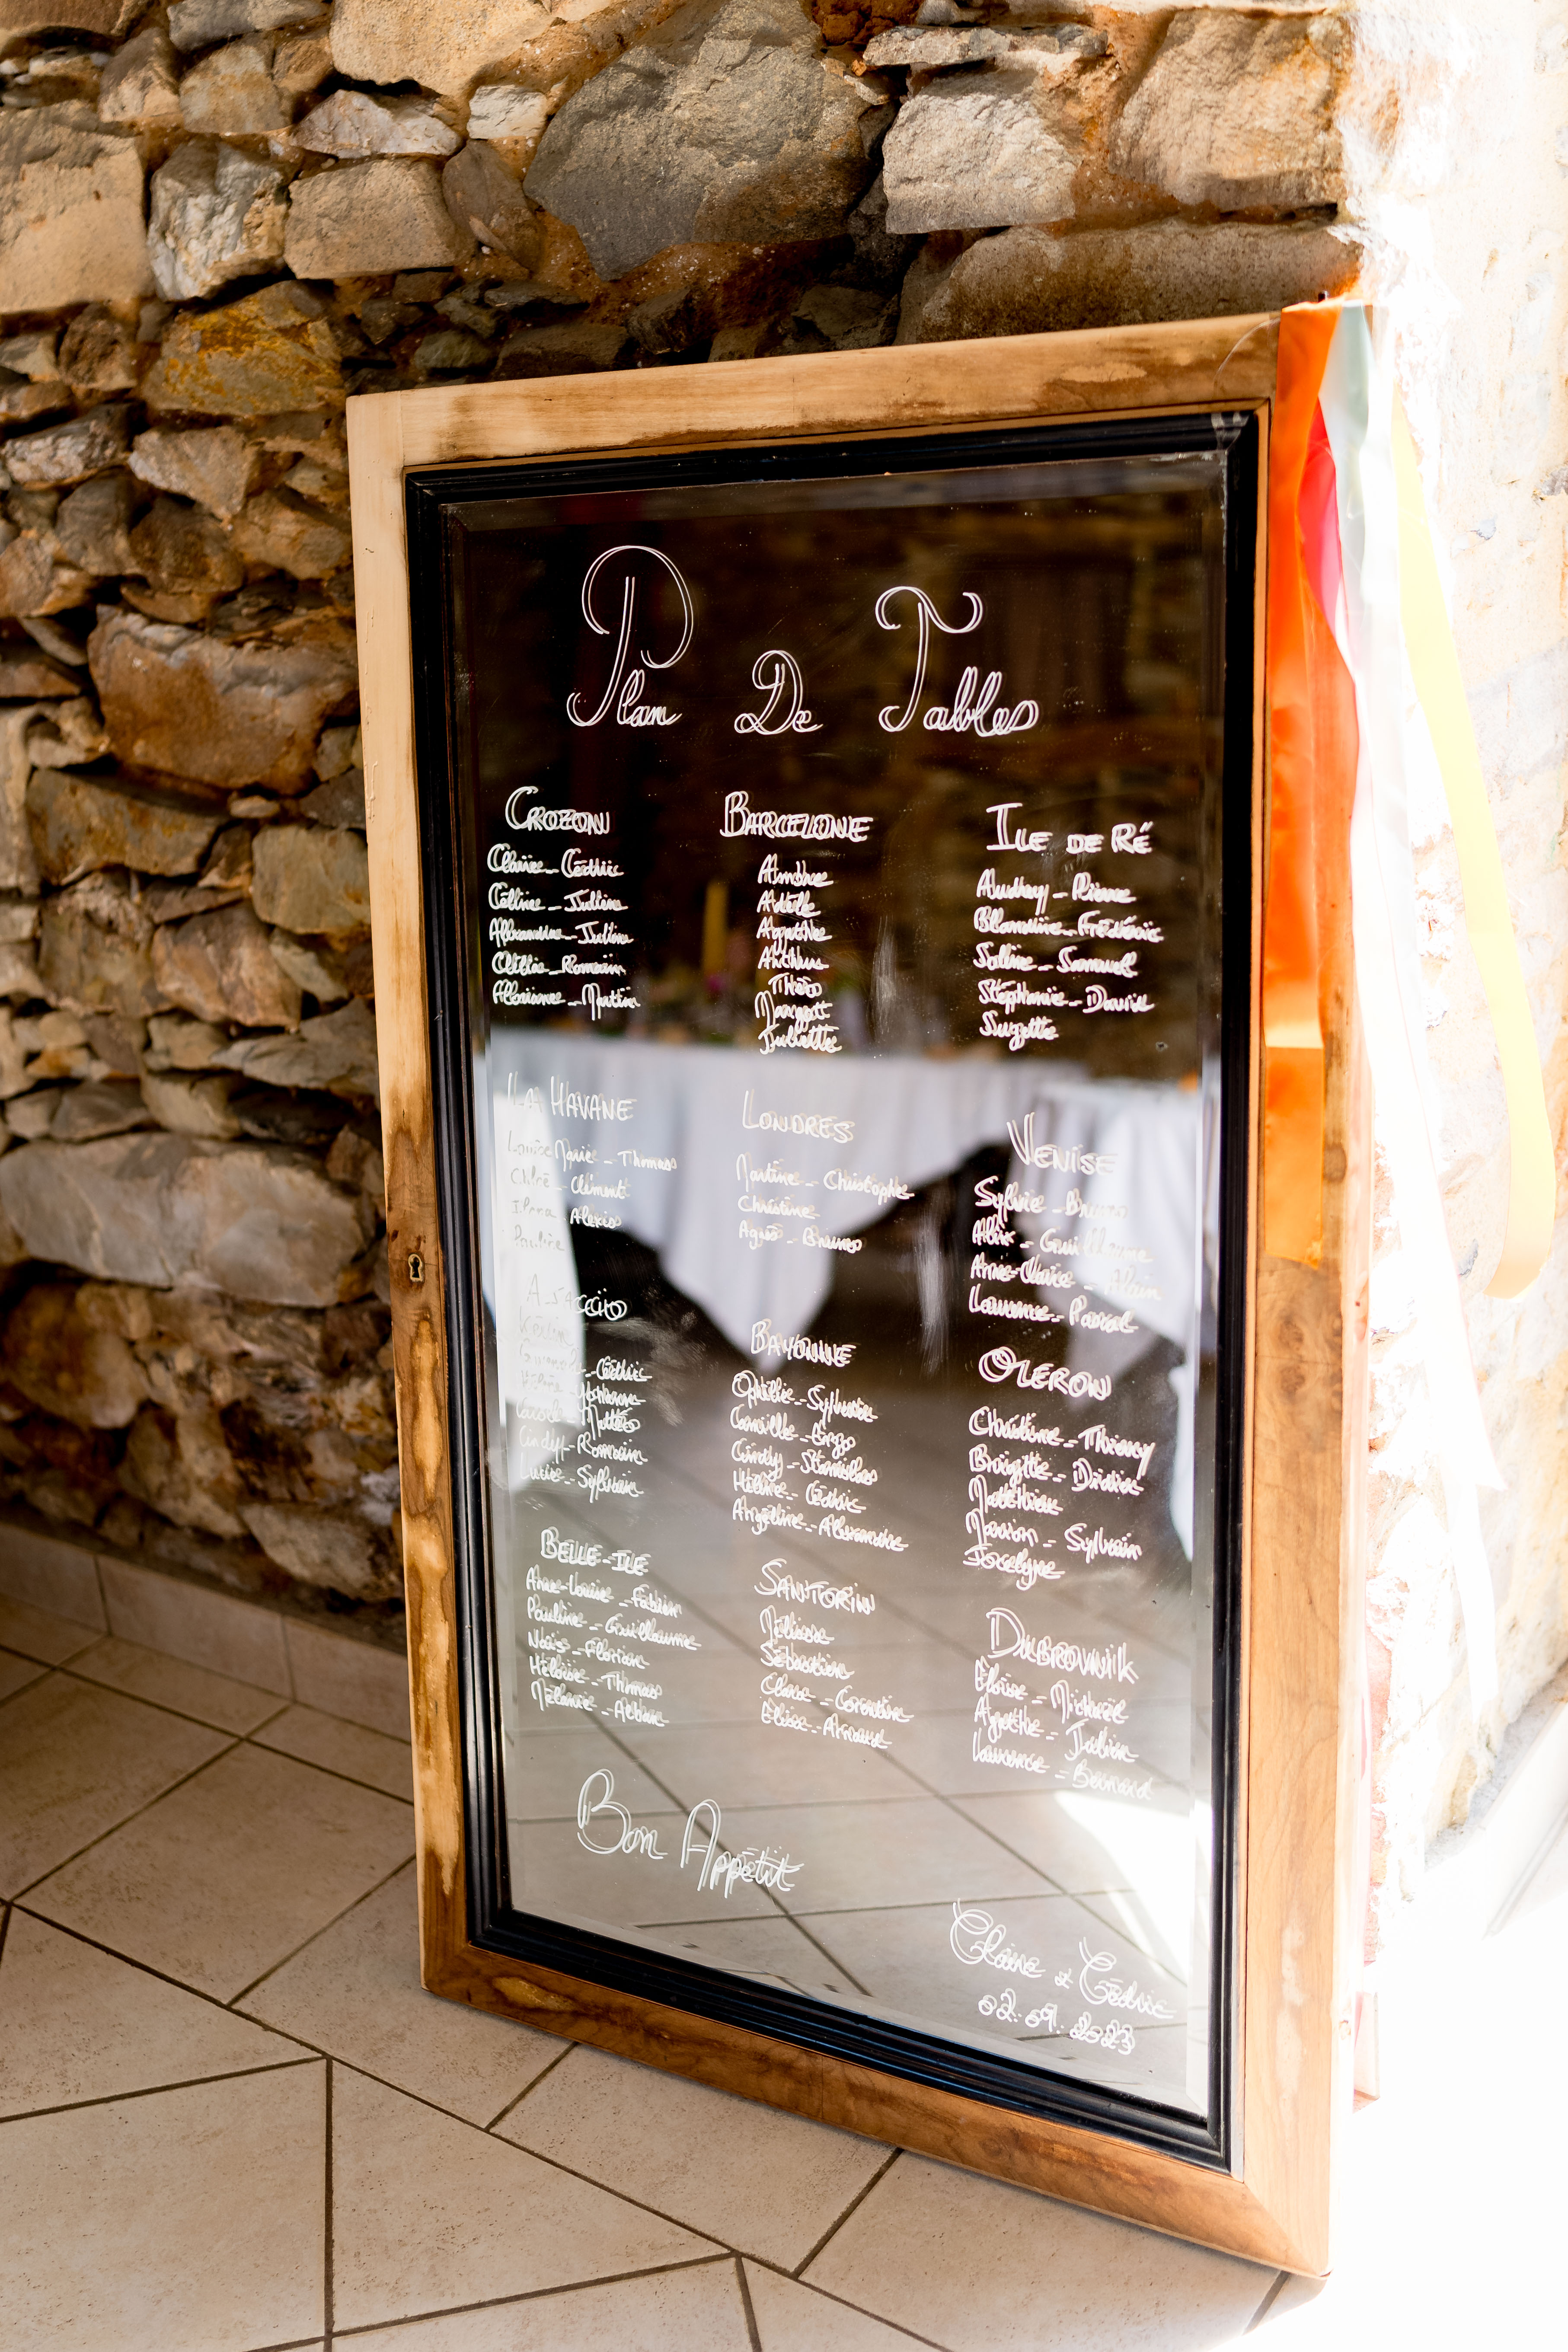 Plan De Tables
CROZON
Claire - Cédric
Céline - Julien
Alexandre - Julien
Romain
Martin
BARCELONE
Ambre
Adèle
Agathe
Arthur
Théo
Margot
Juliette
ILE DE RÉ
Audrey - Pierre
Blandine - Frédéric
Soline - Samuel
Stéphanie - David
Suzette
LA HAVANE
Louise Marie - Thomas
Chloé - Clément
Alexis
Pauline
LONDRES
Martine - Christophe
Christine
Agnès - Bruno
VENISE
Sylvie - Bruno
Alix - Guillaume
Anne-Claire - Alain
Laurence - Pascal
AJACCIO
- Cédric
Carole - Mattéo
Cindy - Romain
Lucie - Sylvain
BAYONNE
Ophélie - Sylvain
Camille - Enzo
Cindy - Stanislas
Hélène - Cédric
Angéline - Alexandre
OLERON
Christine - Thierry
Brigitte - Didier
Mathieu
Marion - Sylvain
Jocelyne
BELLE-ILE
Anne-Louise - Fabien
Pauline - Guillaume
Naïs - Florian
Héloïse - Thomas
Mélanie - Alban
SANTORIN
Mélissa
Sébastien
Clara - Corentin
Elise - Arnaud
DUBROVNIK
Eloïse - Michaël
Agathe - Julien
Laurence - Bernard
Bon Appétit
Claire & Cédric
02.09.2023